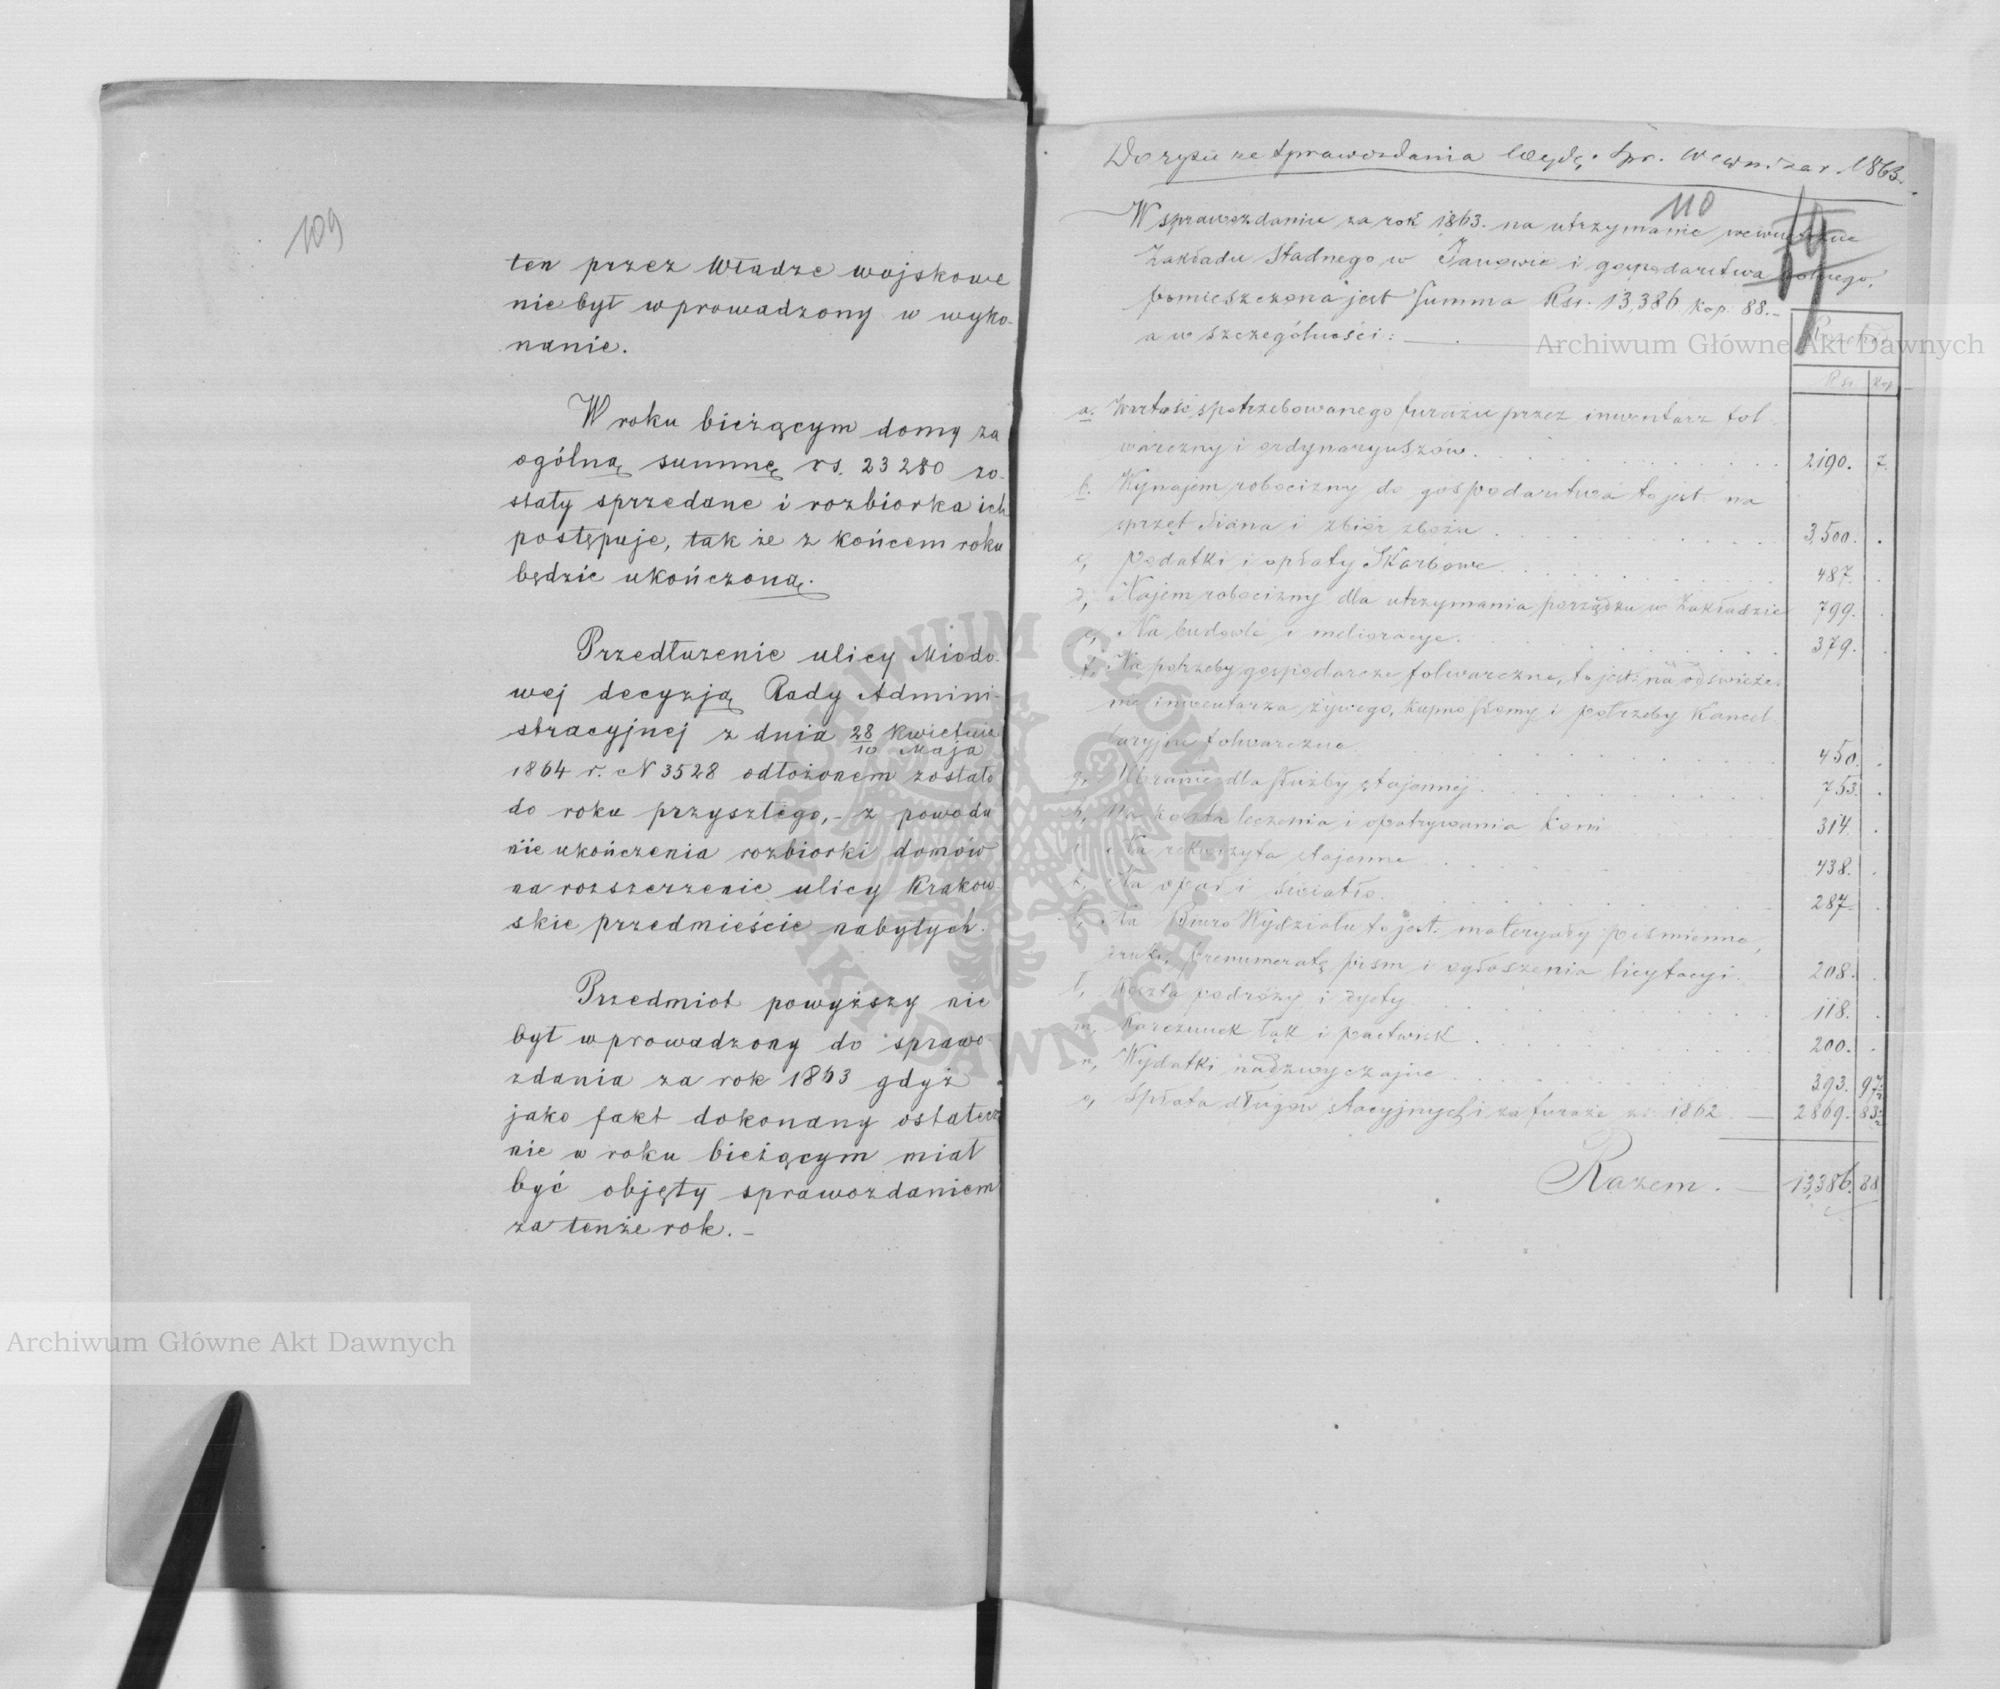 109
ten przez Władze wojskowe
nie był wprowadzony w wyko-
nanie.
W roku bieżącym domy za
ogólną summę rs. 23280 zo-
stały sprzedane i rozbiorka ich
postępuje, tak że z końcem roku
będzie ukończoną.
Przedłużenie ulicy Miodo-
wej decyzją Rady Admini-
stracyjnej z dnia 28/10 Kwietnia/Maja
1864 r. N 3528 odłożonem zostało
do roku przyszłego, - z powodu
nie ukończenia rozbiorki domów
na rozszerzenie ulicy Krakow-
skie przedmieście nabytych.
Przedmiot powyższy nie
był wprowadzony do sprawo-
zdania za rok 1863 gdyż
jako fakt dokonany ostatecz
nie w roku bieżącym miał
być objęty sprawozdaniem
za tenże rok. -
Archiwum Główne Akt Dawnych
ze Sprawozdania Spr. Wewn. za r. 1863.
110
W sprawozdaniu za rok 1863. na utrzymanie
Zakładu Stadnego w Janowie i gospodarstwa
pomieszczona jest Summa Rsr. 13,386 kop. 88. -
a w szczególności:
Archiwum Główne Akt Dawnych
Rsr. Kop
a. Wartość spotrzebowanego furażu przez inwentarz fol-
warczny i ordynaryuszów. 2190. 7.
b. Wynajem robocizny do gospodarstwa to jest na
sprzęt Siana i zbiór zboża 3,500. .
c, podatki i opłaty Skarbowe 487. .
d, Najem robocizny dla utrzymania porządku w Zakładzie 799. .
e, Na budowle i melioracye. 379. .
f, Na potrzeby gospodarcze folwarczne, to jest: na odświeże-
nie inwentarza żywego, kupno słomy i potrzeby Kancel-
laryjne folwarczne 450. .
g, Ubranie dla służby stajennej 753. .
h, Na koszta leczenia i opatrywania koni 314. .
i, Na rekwizyta stajenne 438. .
k, Na opał i światło. 287. .
l, Na Biuro Wydziału to jest: materyały piśmienne,
druki, prenumeratę pism i ogłoszenia licytacyi. 208. .
ł, Koszta podróży i dyety 118. .
m, Karczunek łąk i pastwisk 200. .
n, Wydatki nadzwyczajne 393. 97½
o, Spłata długów stacyjnych i za furaże za 1862 2869. 83½
Razem. 13,386. 88
ARCHIWUM GŁÓWNE
AKT DAWNYCH